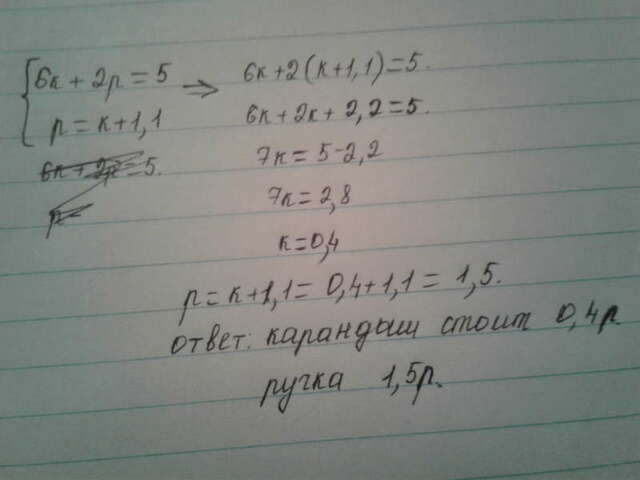 {6к + 2р = 5 ⇒ 6к+2(к+1,1)=5.
р = к+1,1 6к+2к+2,2=5.
6к + 2р = 5. 7к = 5-2,2
р= 7к = 2,8
к=0,4
р= к+1,1 = 0,4+1,1 = 1,5.
ответ: карандаш стоит 0,4р
ручка 1,5р.